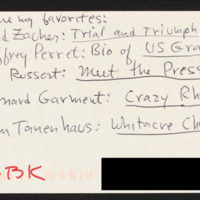 me my favorites:
d Zacher: Trial and Triumph
ffrey Perret: Bio of US Gra
Russert: Meet the Press
nard Garment: Crazy Rh
m Tanenhaus: Whitacre Ch
BK